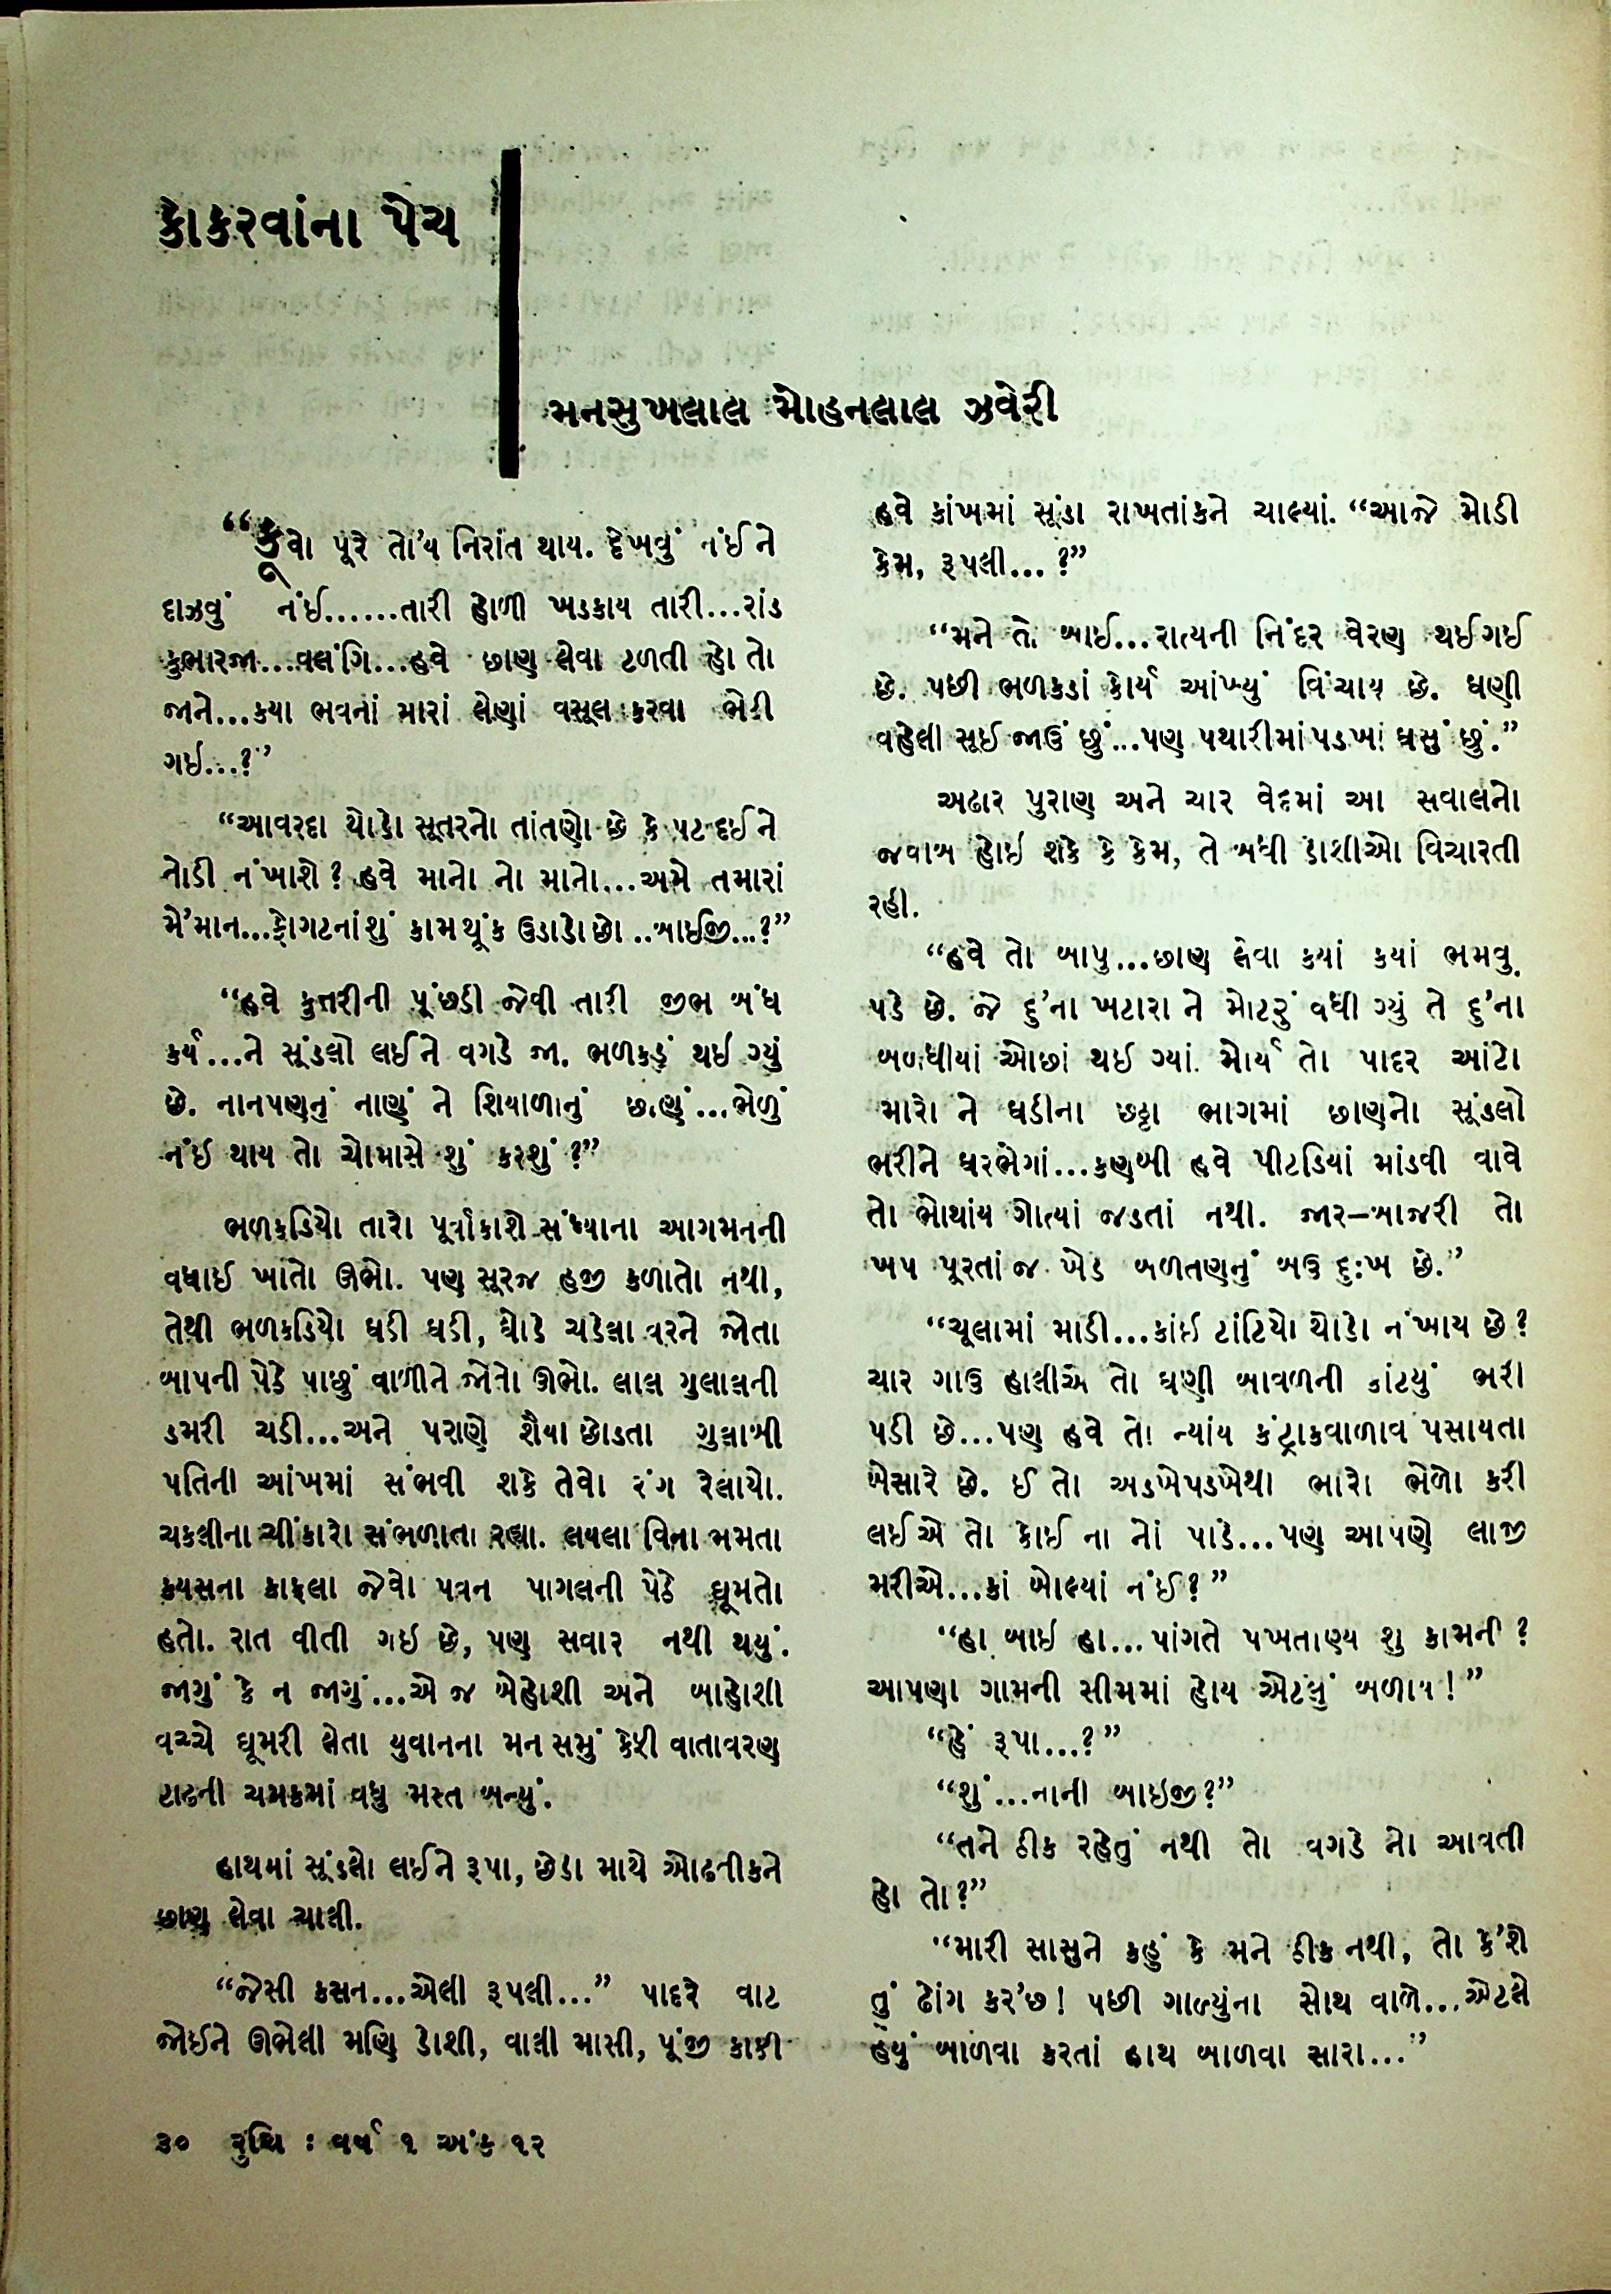 કોકરવાંના પેચ
મનસુખલાલ મોહનલાલ ઝવેરી
“કૂવો પૂરે તો’ય નિરાંત થાય. દેખવું નંઈ ને
દાઝવું નંઈ......તારી હોળી ખડકાય તારી...રાંડ
કુભારજા...વલંગિ...હવે છાણ લેવા ટળતી હો તો
જાને...કયા ભવનાં મારાં લેણાં વસૂલ કરવા ભેટી
ગઇ...?”
“આવરદા થોડો સૂતરનો તાંતણો છે કે પટ દઈ ને
તોડી નંખાશે? હવે માનો નો માનો...અમે તમારાં
મે’માન...ફોગટનાં શું કામ થૂંક ઉડાડો છો ..બાઈજી...?”
“હવે કુત્તરીની પૂંછડી જેવી તારી જીભ બંધ
કર્ય...ને સૂંડલો લઈને વગડે જા. ભળકડું થઈ ગ્યું
છે. નાનપણનું નાણું ને શિયાળાનું છાણું...ભેળું
નંઈ થાય તો ચોમાસે શું કરશું?”
ભળકડિયો તારો પૂર્વાકાશે સંધ્યાના આગમનની
વધાઈ ખાતો ઊભો. પણ સૂરજ હજી કળાતો નથી,
તેથી ભળકડિયો ઘડી ઘડી, ઘોડે ચડેલા વરને જોતા
બાપની પેઠે પાછું વાળીને જોતો ઊભો. લાલ ગુલાલની
ડમરી ચડી...અને પરાણે શૈયા છોડતા ગુલાબી
પતિની આંખમાં સંભવી શકે તેવો રંગ રેલાયો.
ચકલીના ચીંકારો સંભળાતા રહ્યા. લયલા વિના ભમતા
કયસના કાફલા જેવો પવન પાગલની પેઠે ઘૂમતો
હતો. રાત વીતી ગઇ છે, પણ સવાર નથી થયું.
જાગું કે ન જાગું...એ જ બેહોશી અને બાહોશી
વચ્ચે ઘૂમરી લેતા યુવાનના મન સમું કેફી વાતાવરણ
ટાઢની ચમકમાં વધુ મસ્ત બન્યું.
હાથમાં સૂંડલો લઈને રૂપા, છેડા માથે ઓઢતીકને
છાણ લેવા ચાલી.
“જેસી કસન...એલી રૂપલી...” પાદરે વાટ
જોઈને ઊભેલી મણિ ડોશી, વાલી માસી, પૂંજી કાકી
હવે કાંખમાં સૂંડા રાખતાંકને ચાલ્યાં. “આજે મોડી
કેમ, રૂપલી... ?”
“મને તો બાઈ...રાત્યની નિંદર વેરણ થઈ ગઈ
છે. પછી ભળકડાં કોર્ય આંખ્યું વિંચાય છે. ઘણી
વહેલી સૂઈ જાઉં છું...પણ પથારીમાં પડખાં ઘસું છું.”
અઢાર પુરાણ અને ચાર વેદમાં આ સવાલનો
જવાબ હોઇ શકે કે કેમ, તે બધી ડોશીઓ વિચારતી
રહી.
“હવે તો બાપુ...છાણ લેવા કયાં કયાં ભમવુ
પડે છે. જે દુ’ના ખટારા ને મોટરું વધી ગ્યું તે દુ’ના
બળધીયાં ઓછાં થઈ ગ્યાં. મોર્ય તો પાદર આંટો
મારો ને ઘડીના છઠ્ઠા ભાગમાં છાણનો સૂંડલો
ભરીને ઘરભેગાં...કણબી હવે પીટડિયાં માંડવી વાવે
તો ભોથાંય ગોત્યાં જડતાં નથી. જાર–બાજરી તો
ખપ પૂરતાં જ ખેડે બળતણનું બઉ દુ:ખ છે.”
“ચૂલામાં માડી...કાંઈ ટાંટિયો થોડો નંખાય છે?
ચાર ગાઉ હાલીએ તો ઘણી બાવળની કાંટયું ભરી
પડી છે...પણ હવે તો ન્યાંય કંટ્રાકવાળાવ પસાયતા
બેસારે છે. ઈ તો અડખેપડખેથી ભારો ભેળો કરી
લઈએ તો કોઈ ના નો પાડે...પણ આપણે લાજી
મરીએ...કાં બોલ્યાં નંઈ?”
“હા બાઇ હા...પાંગતે પખતાણ્ય શુ કામની?
આપણા ગામની સીમમાં હોય એટલું બળાય!”
“હેં રૂપા...?”
“શું...નાની બાઇજી?”
“તને ઠીક રહેતું નથી તો વગડે નો આવતી
હો તો?”
“મારી સાસુને કહું કે મને ઠીક નથી, તો કે’શે
તું ઢોંગ કર’છ! પછી ગાળ્યુંના સોથ વાળે...એટલે
હૈયું બાળવા કરતાં હાથ બાળવા સારા...”
૩૦ રુચિ : વર્ષ ૧ અંક ૧૨